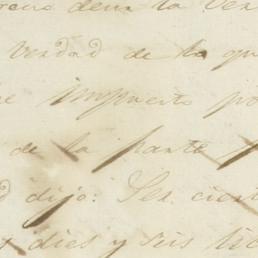 deur la ver
verdad de lo qu
impuesto po
de la parte
dijo: Ser ciert
dies y seis